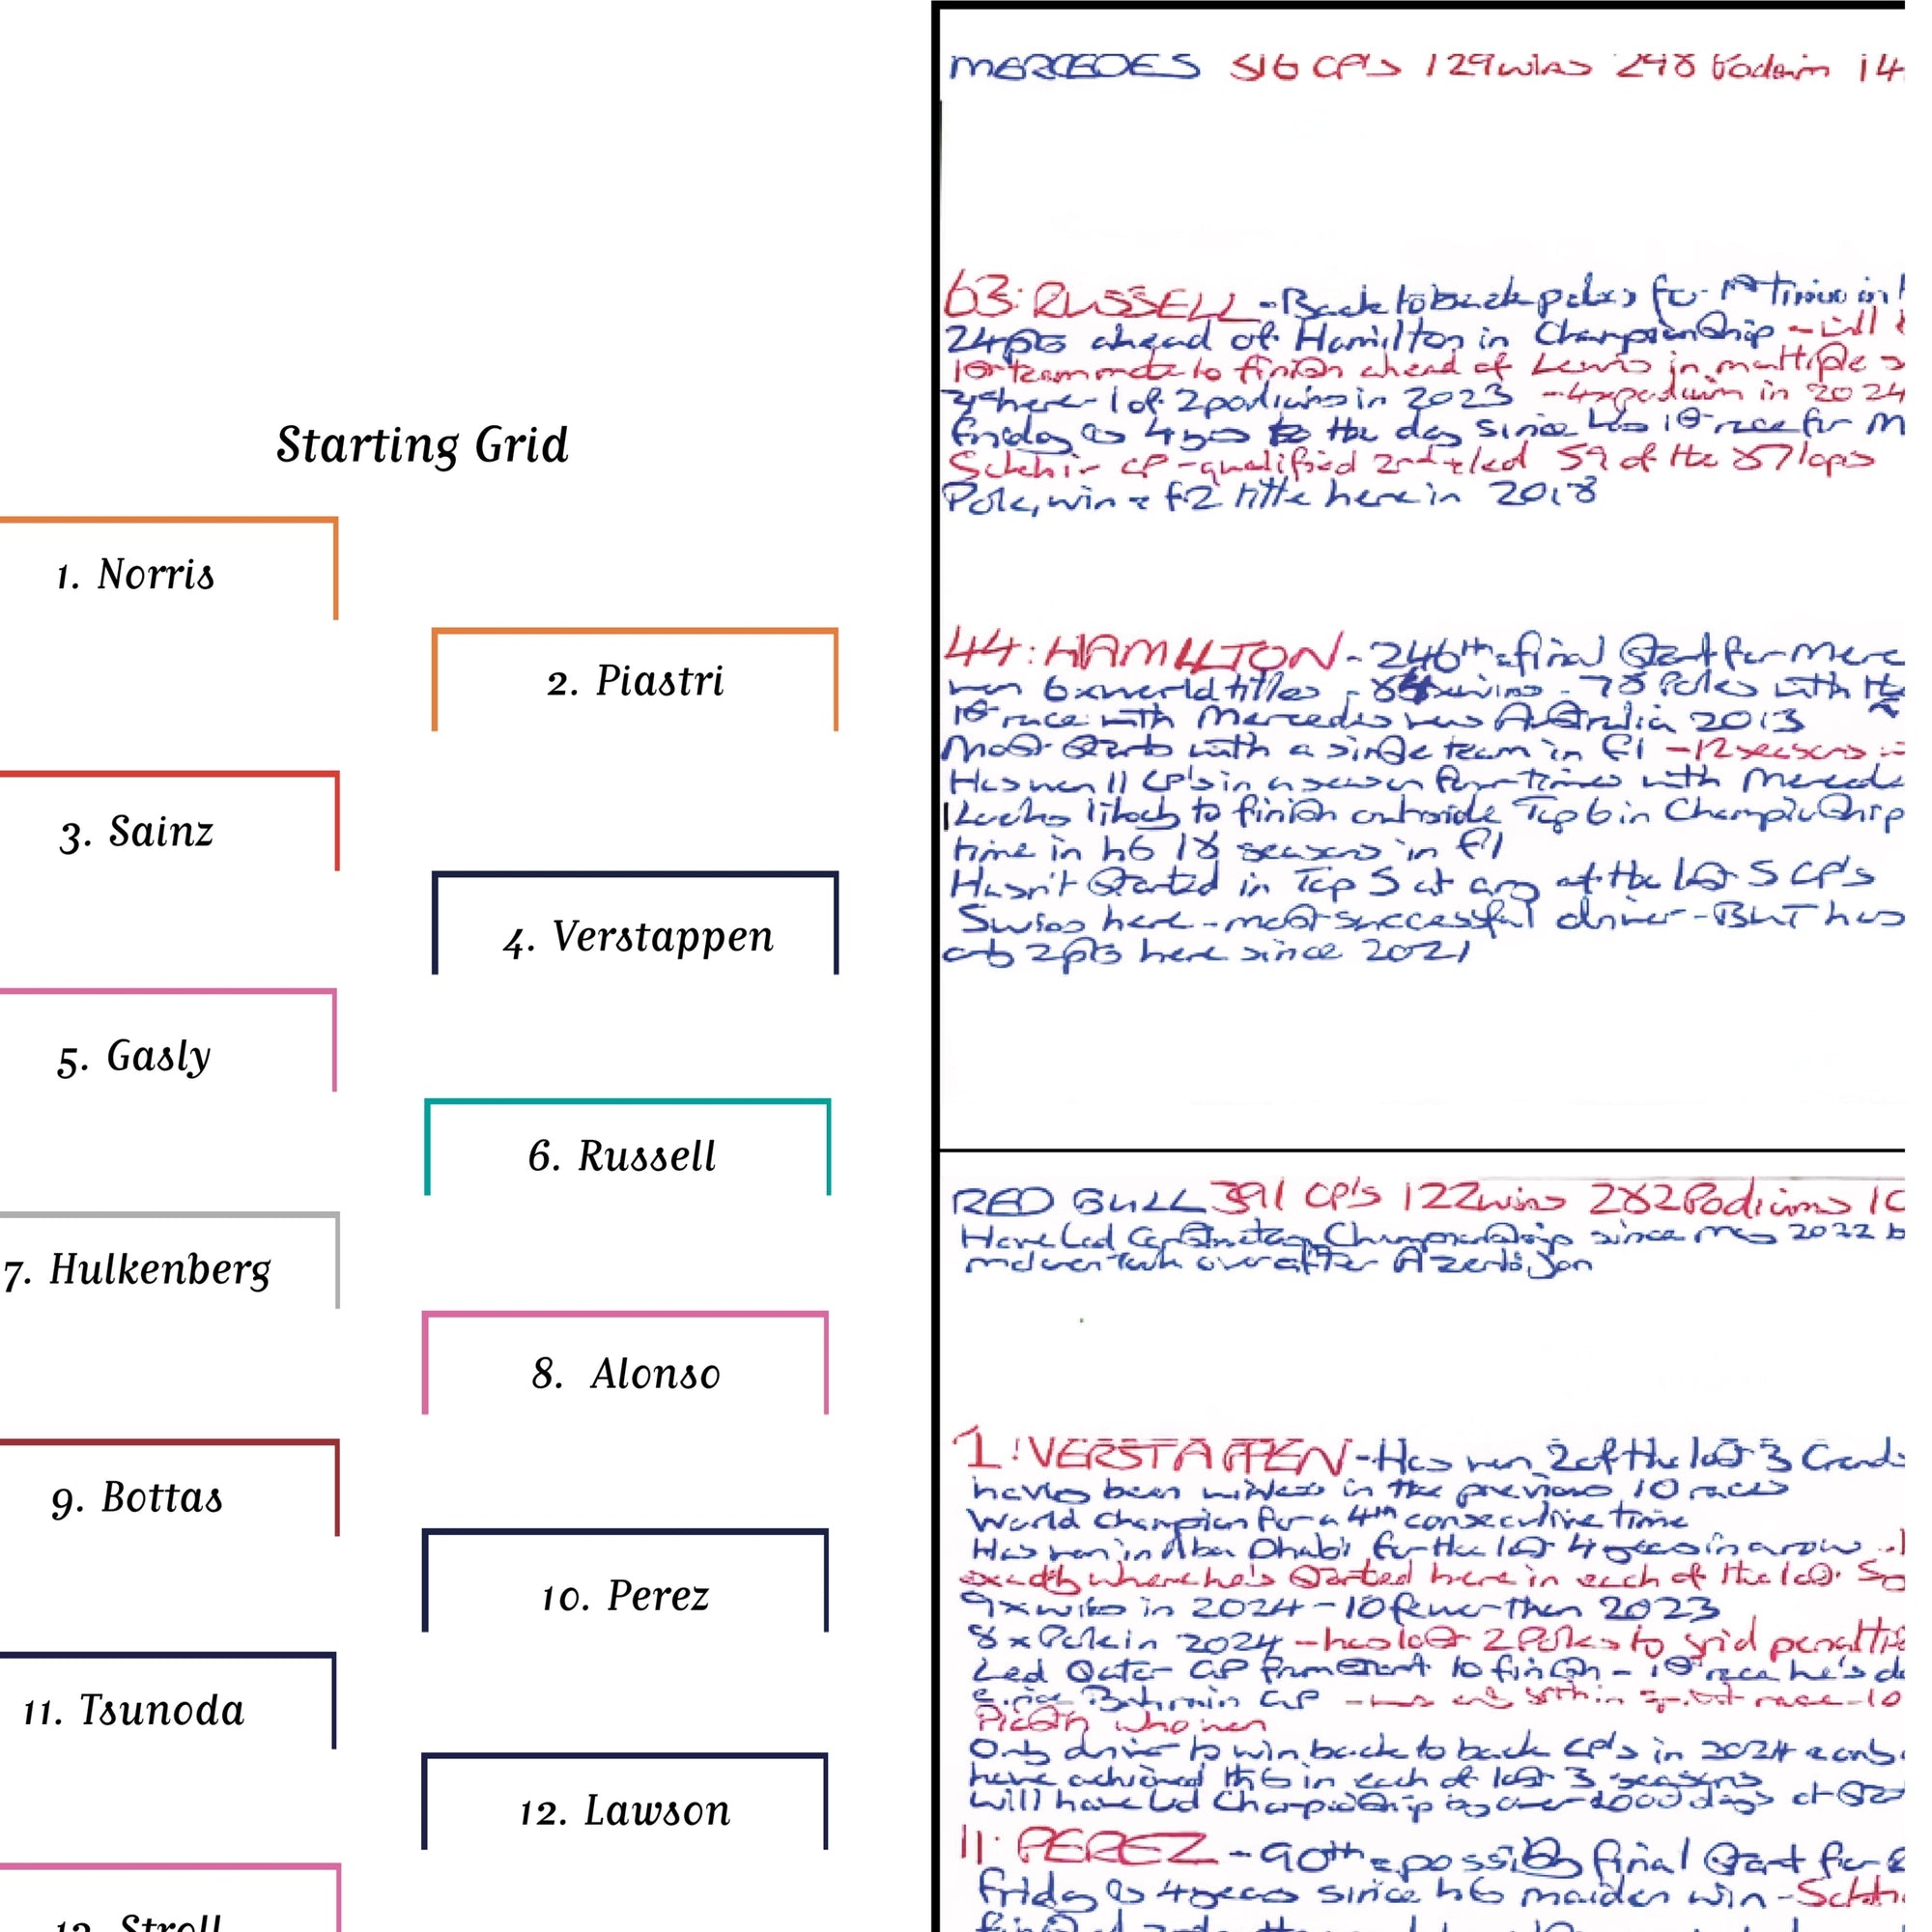 Starting Grid
1. Norris
2. Piastri
3. Sainz
4. Verstappen
5. Gasly
6. Russell
7. Hulkenberg
8. Alonso
9. Bottas
10. Perez
11. Tsunoda
12. Lawson
13. Stroll
MERCEDES 516 GP's 129 wins 298 Podium 14
63: RUSSELL - Back to back poles for 1st time in
24pts ahead of Hamilton in Championship - will
1st teammate to finish ahead of Lewis in multiple
here - 1 of 2 podiums in 2023 - 4xpodium in 2024
Friday is 4 yrs to the day since his 1st race for M
Sakhir GP - qualified 2nd + led 59 of the 87 laps
Pole, win + F2 title here in 2018
44: HAMILTON - 246th + final Start for Merc
won 6xworld titles - 84xwins - 78 Poles with the
1st race with Mercedes was Australia 2013
Most Starts with a single team in F1 - 12 seasons
Has won 11 GP's in a season four times with Mercede
Looks likely to finish outside Top 6 in Championship
time in his 18 seasons in F1
Hasn't Started in Top 5 at any of the last 5 GP's
5wins here - most successful driver - BUT has
only 2pts here since 2021
RED BULL 391 GP's 122wins 282Podiums 10
Have led Constructors Championship since May 2022 b
mclaren took over after Azerbaijan
1: VERSTAPPEN - Has won 2 of the last 3 Grands
having been winless in the previous 10 races
World champion for a 4th consecutive time
Has won in Abu Dhabi for the last 4 years in a row
exactly where he's Started here in each of the last 5
9xwins in 2024 - 10 fewer than 2023
8xPole in 2024 - has lost 2 Poles to grid penalti
Led Qatar GP from Start to finish - 1st race he's d
since Bahrain GP - was only 8th in sprint race - 10
Piastri who won
Only driver to win back to back GP's in 2024 + only
have achieved this in each of last 3 seasons
will have led Championship by over 1000 days at
11: PEREZ - 90th + possibly final Start for
Friday is 4years since his maiden win - Sakhi